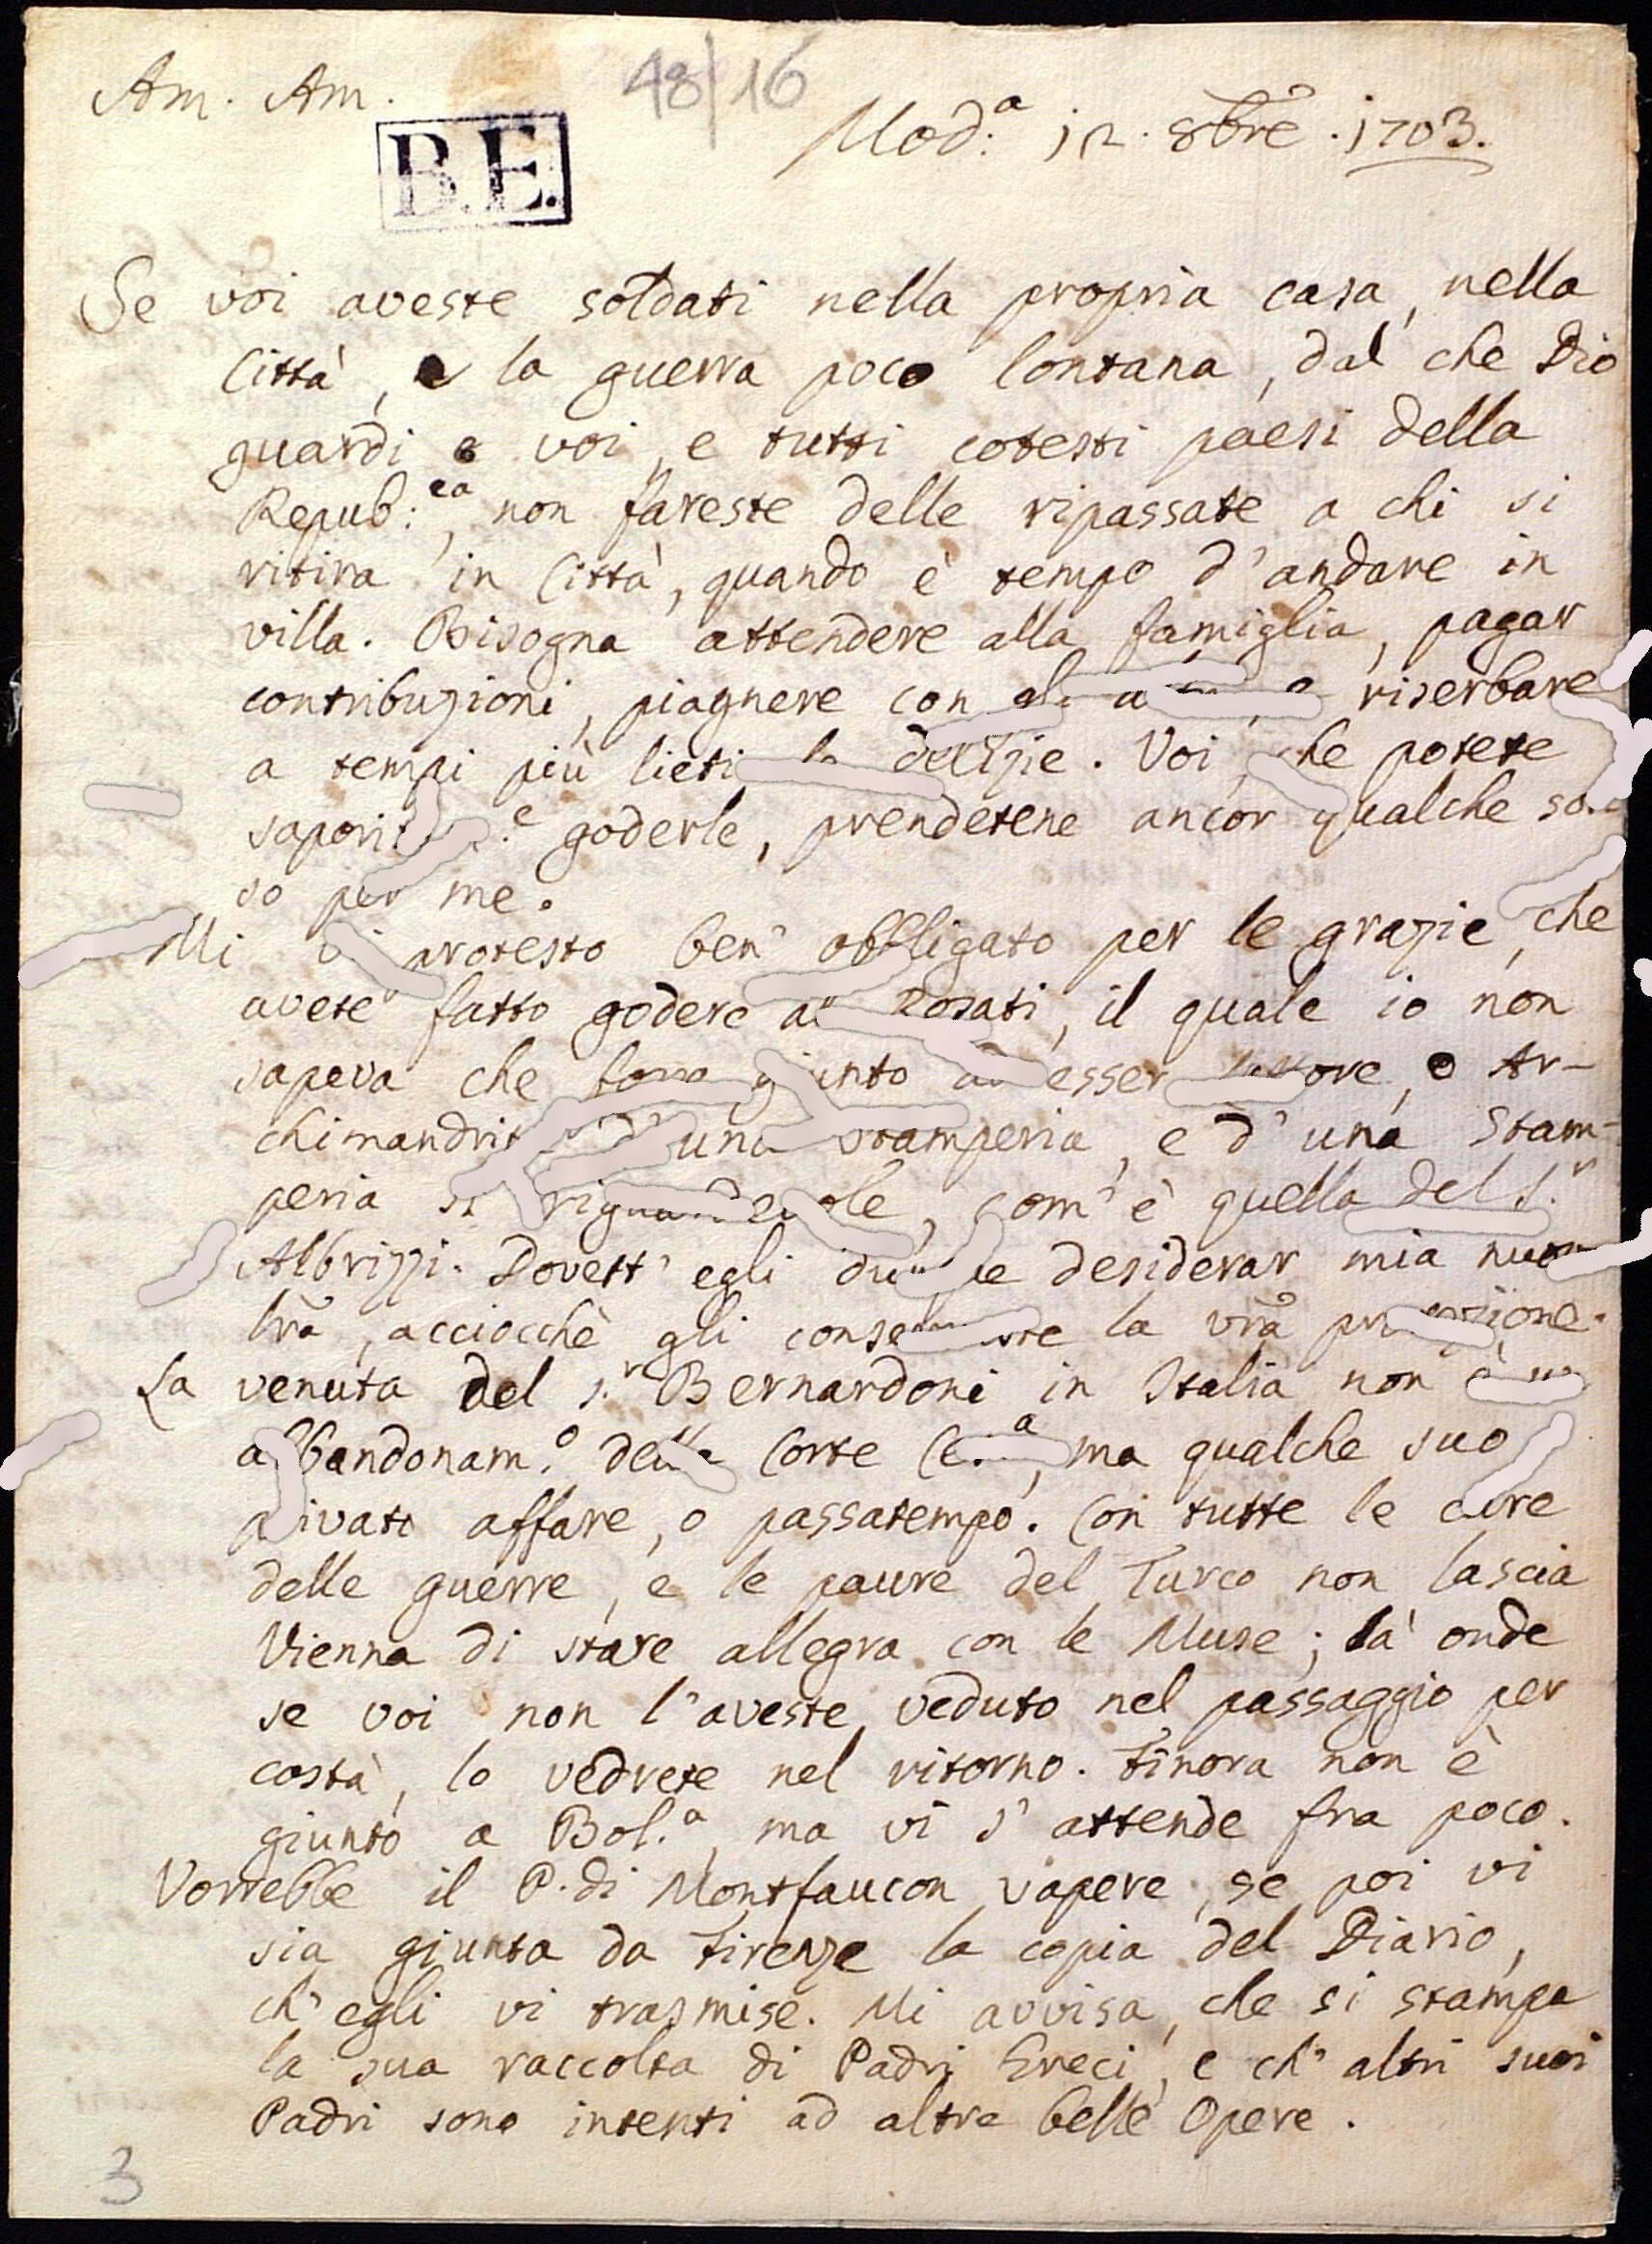 Am. Am.
48/16
Mod.ª 12. 8bre. 1703.
B.E.
Se voi aveste soldati nella propria casa, nella
Città, e la guerra poco lontana, dal che Dio
guardi e voi, e tutti cotesti paesi della
Repub:ca, non fareste delle ripassate a chi si
ritira in Città, quando è tempo d'andare in
villa. Bisogna attendere alla famiglia, pagar
contribuzioni, piagnere con gli e riserbare
a tempi più lieti le delizie. Voi, che potete
goderle, prendetene ancor qualche
so per me.
Mi vi protesto ben' obbligato per le grazie, che
avete fatto godere al Rosati, il quale io non
sapeva che fosse giunto ad esser e Ar-
chimandrita d'una Stamperia, e d'una Stam-
peria sì riguardevole, com'è quella del S.r
Albrizzi. Dovett' egli dunque desiderar mia
lrã, acciocchè gli la vrã
La venuta del s.r Bernardoni in Italia non è
abbandonam.º della Corte Ces.ª, ma qualche suo
privato affare, o passatempo. Con tutte le cure
delle guerre, e le paure del Turco non lascia
Vienna di stare allegra con le Muse; là onde
se voi non l'aveste veduto nel passaggio per
costà, lo vedrete nel ritorno. Finora non è
giunto a Bol.ª, ma vi s'attende fra poco.
Vorrebbe il P. di Montfaucon sapere, se poi vi
sia giunta da Firenze la copia del Diario,
ch'egli vi trasmise. Mi avvisa, che si stampa
la sua raccolta di Padri Greci, e ch'altri suoi
Padri sono intenti ad altre belle Opere.
3